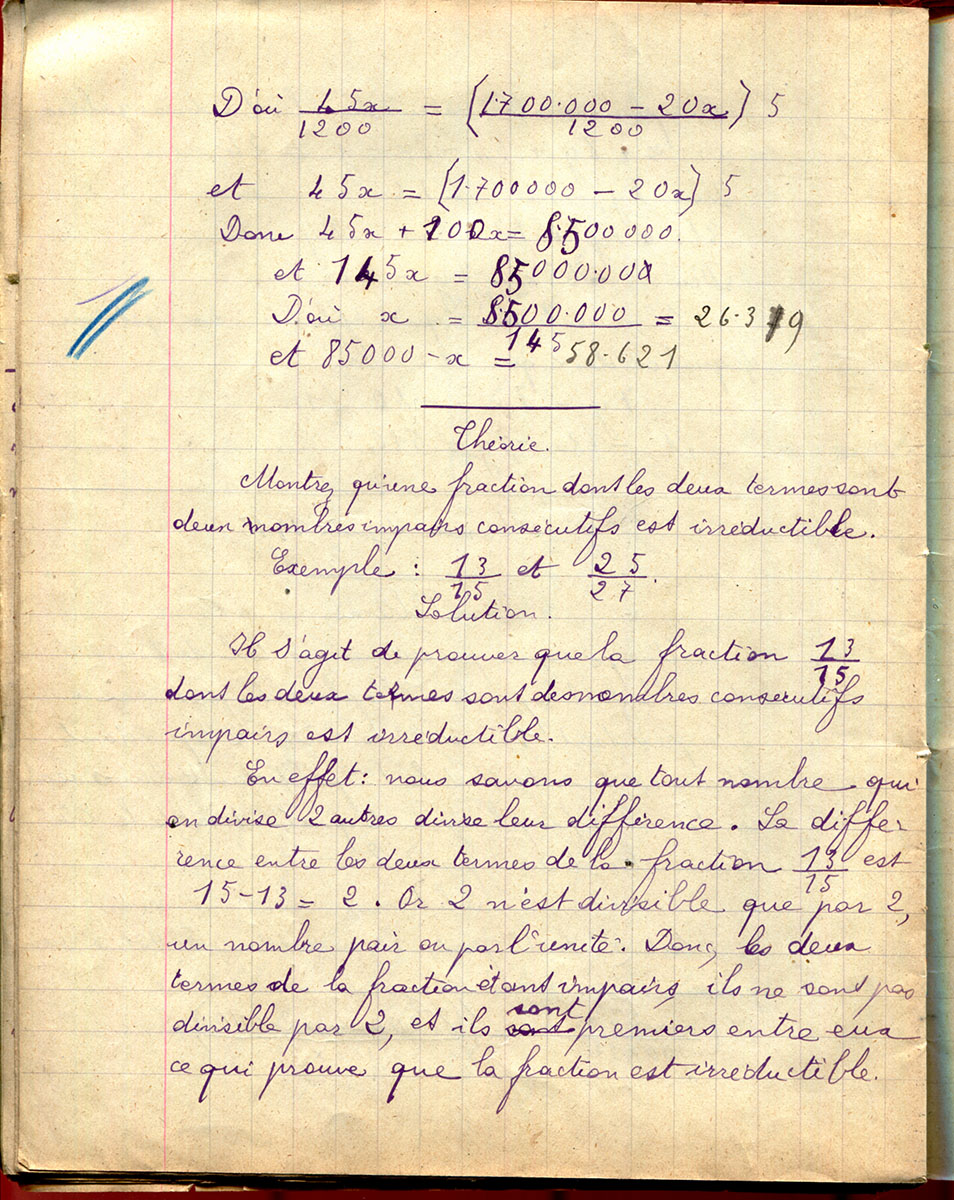 D'où 45x/1200 = (1.700.000 – 20x) 5/1200
et 45x = (1.700000 – 20x) 5
Donc 45x + 100x = 8.500000.
et 145x = 85000.000
D'où x = 8500.000/145 = 26.379
et 85000 – x = 58.621
Théorie.
Montrez qu'une fraction dont les deux termes sont
deux nombres impairs consécutifs est irréductible.
Exemple : 13/15 et 25/27.
Solution.
Il s'agit de prouver que la fraction 13/15
dont les deux termes sont des nombres consécutifs
impairs est irréductible.
En effet : nous savons que tout nombre qui
en divise 2 autres divise leur différence. La diffé
rence entre les deux termes de la fraction 13/15 est
15 – 13 = 2. Or 2 n'est divisible que par 2,
un nombre pair ou par l'unité. Donc, les deux
termes de la fraction étant impairs, ils ne sont pas
divisible par 2, et ils sont premiers entre eux
ce qui prouve que la fraction est irréductible.